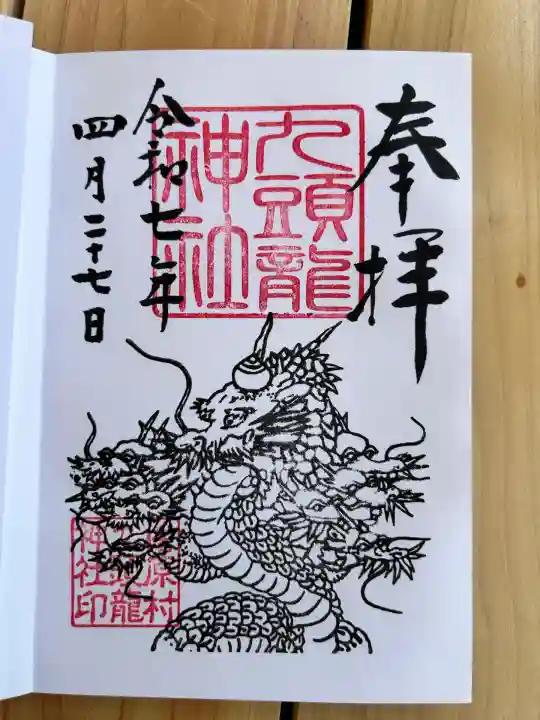 奉拝
九頭龍
神社
令和七年
四月二十七日
原村
龍
神社印